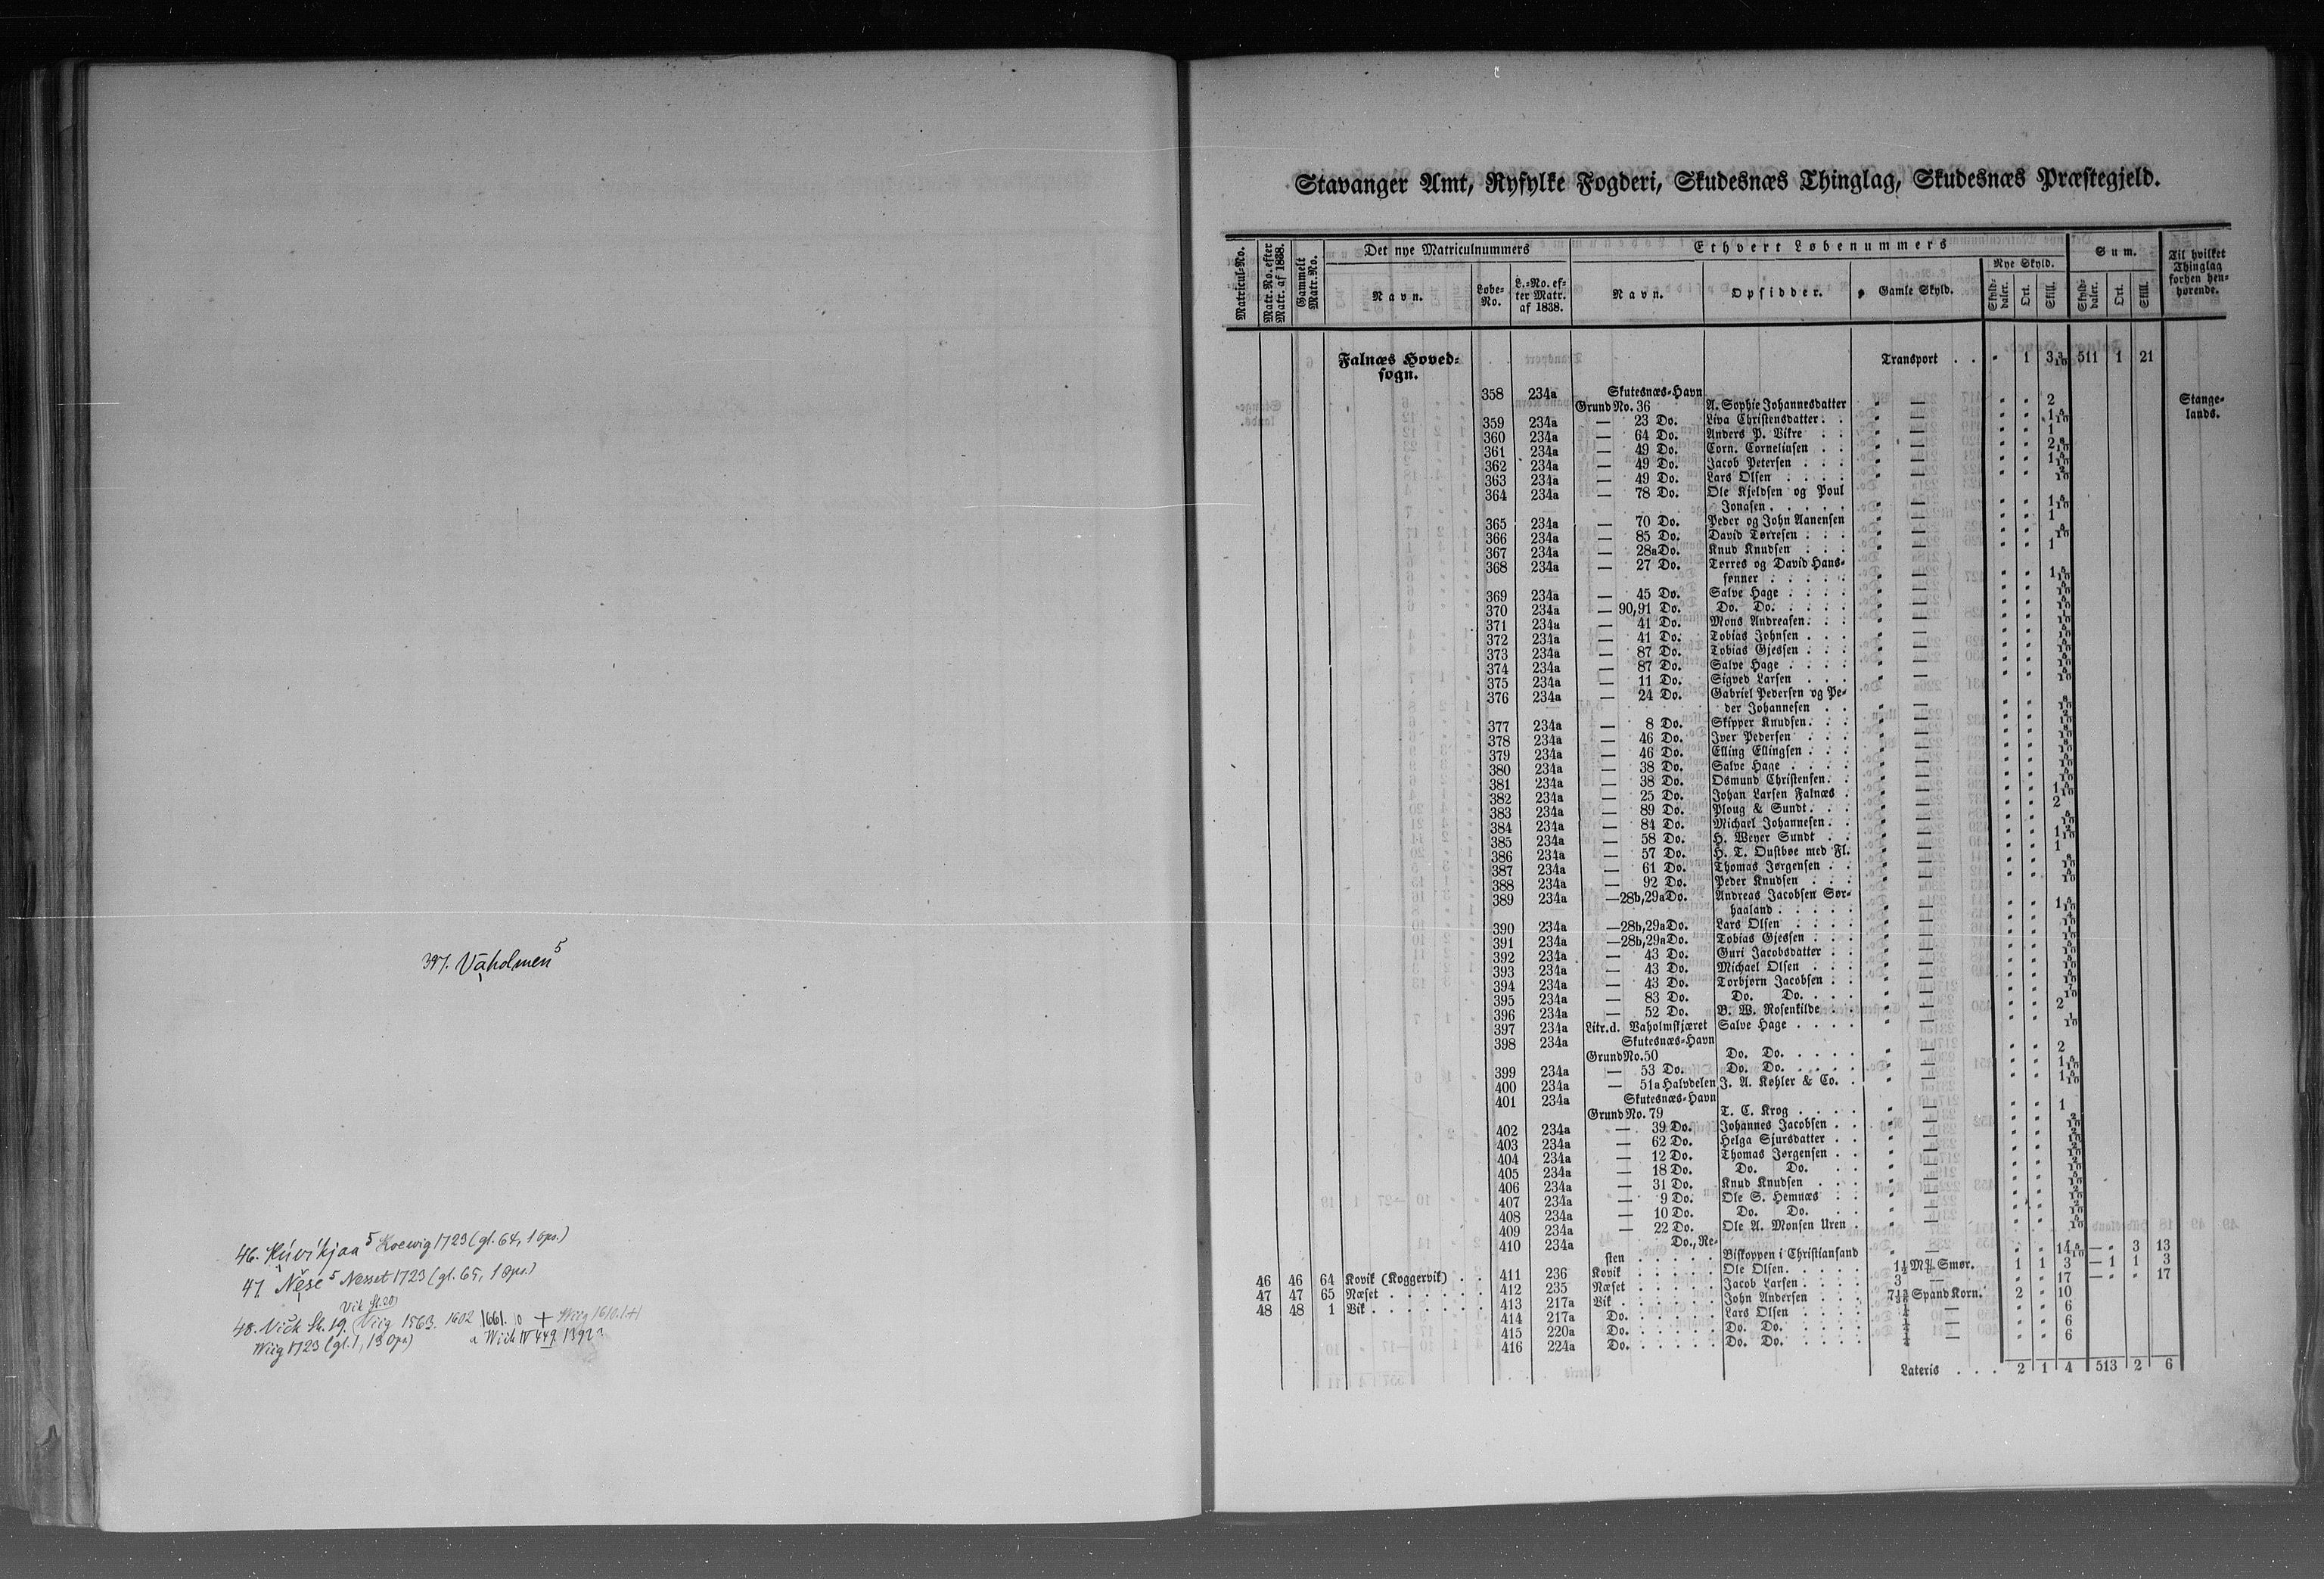 397. Vaholmen 5
46. Kúvikjaa 5 Koewig 1723 (gl. 64, 1 Ops.)
47. Nese 5 Nesset 1723 (gl. 65, 1 Ops.)
48. Vick St. 19. Viig 1563. 1602 1661.
Wiig 1723 (gl. 1, 13 Ops)
Stavanger Amt, Ryfylke Fogderi, Skudesnæs Thinglag, Skudesnæs Præstegjeld.
Matricul-No. Matr. No. efter Matr. af 1838. Gammelt Matr. No. Det nye Matriculnummers Ethvert Løbenummers Sum. Til hvilket Thinglag forhen henhørende.
Navn. Løbe-No. L.-No. efter Matr. af 1838. Navn. Opsidder. Gamle Skyld. Nye Skyld. Skylddaler. Ort. Skill. Skylddaler. Ort. Skill.
Falnæs Hoved- Transport . . " 1 3 3/10 511 1 21
sogn.
358 234a Skutesnæs-Havn Stange-
Grund No. 36 A. Sophie Johannesdatter " — " " 2 lands.
359 234a — 23 Do. Liva Christensdatter . . " — " " 1 5/10
360 234a — 64 Do. Anders P. Vikre . . " — " " 1
361 234a — 49 Do. Corn. Corneliusen . . " — " " 2 8/10
362 234a — 49 Do. Jacob Petersen . . . " — " " 1 5/10
363 234a — 49 Do. Lars Olsen . . . . " — " " 2/10
364 234a — 78 Do. Ole Kjeldsen og Poul
Jonasen . . . . . " — " " 1 5/10
365 234a — 70 Do. Peder og John Aanensen " — " " 1
366 234a — 85 Do. David Tørresen . . . " — " " 5/10
367 234a — 28a Do. Knud Knudsen . . . " — " " 1
368 234a — 27 Do. Tørres og David Hans-
sønner . . . . . " — " " 1 5/10
369 234a — 45 Do. Salve Hage . . . . " — " " 5/10
370 234a — 90,91 Do. Do. Do. . . . . . " — " " 5/10
371 234a — 41 Do. Mons Andreasen . . . " — " " 1/10
372 234a — 41 Do. Tobias Johnsen . . . " — " " 5/10
373 234a — 87 Do. Tobias Gjessen . . . " — " " 5/10
374 234a — 87 Do. Salve Hage . . . . " — " " 5/10
375 234a — 11 Do. Sigved Larsen . . . " — " " 5/10
376 234a — 24 Do. Gabriel Pedersen og Pe-
der Johannesen . . " — " " 8/10
377 234a — 8 Do. Skipper Knudsen . . . " — " " 2/10
378 234a — 46 Do. Jver Pedersen . . . " — " " 8/10
379 234a — 46 Do. Elling Ellingsen . . . " — " " 8/10
380 234a — 38 Do. Salve Hage . . . . " — " " 5/10
381 234a — 38 Do. Osmund Christensen . . " — " " 5/10
382 234a — 25 Do. Johan Larsen Falnæs . " — " " 1 5/10
383 234a — 89 Do. Ploug & Sundt . . . " — " " 2
384 234a — 84 Do. Michael Johannesen . . " — " " 5/10
385 234a — 58 Do. H. Weyer Sundt . . " — " " 1 2/10
386 234a — 57 Do. H. T. Oustbøe med Fl. " — " " 1
387 234a — 61 Do. Thomas Jørgensen . . " — " " 8/10
388 234a — 92 Do. Peder Knudsen . . . " — " " 5/10
389 234a —28b,29a Do. Andreas Jacobsen Sør-
haaland . . . . . " — " " 1 5/10
390 234a —28b,29a Do. Lars Olsen . . . . " — " " 4/10
391 234a —28b,29a Do. Tobias Gjessen . . . " — " " 1/10
392 234a — 43 Do. Guri Jacobsdatter . . " — " " 5/10
393 234a — 43 Do. Michael Olsen . . . " — " " 5/10
394 234a — 43 Do. Torbjørn Jacobsen . . " — " " 5/10
395 234a — 83 Do. Do. Do. . . . " — " " 7/10
396 234a — 52 Do. B. W. Rosenkilde . . " — " " 2
397 234a Litr. d. Vaholmskjæret Salve Hage . . . . " — " " 1/10
398 234a Skutesnæs-Havn
Grund No. 50 Do. Do. . . . . . " — " " 2
399 234a — 53 Do. Do. Do. . . . . . " — " " 1 5/10
400 234a — 51a Halvdelen J. A. Køhler & Co. . " — " " 1 5/10
401 234a Skutesnæs-Havn
Grund No. 79 T. C. Krog . . . . " — " " 1
402 234a — 39 Do. Johannes Jacobsen . . " — " " 2/10
403 234a — 62 Do. Helga Sjursdatter . . " — " " 2/10
404 234a — 12 Do. Thomas Jørgensen . . " — " " 2/10
405 234a — 18 Do. Do. Do. . . " — " " 2/10
406 234a — 31 Do. Knud Knudsen . . . " — " " 5/10
407 234a — 9 Do. Ole S. Hemnæs . . " — " " 2/10
408 234a — 10 Do. Do. Do. . . " — " " 2/10
409 234a — 22 Do. Ole A. Monsen Uren . " — " " 5/10
410 234a Do., Re-
sten . . . . . Biskoppen i Christiansand " — " " 14 5/10 — " 3 13
46 46 64 Kovik (Koggervik) . . 411 236 Kovik . . . . . Ole Olsen . . . . . 1 1/2 Ml Smør. 1 1 3 — 1 1 3
47 47 65 Næset . . . . . . 412 235 Næset . . . . . Jacob Larsen . . . . 3 — " " 17 — " " 17
48 48 1 Vik . . . . . . . 413 217a Vik . . . . . . John Andersen . . . 7 13/32 Spand Korn. 2 " 10
414 217a Do. . . . . . . Lars Olsen . . . . 1/4 — " " 6
415 220a Do. . . . . . . Do. Do. . . . . 1/4 — " " 6
416 224a Do. . . . . . . Do. Do. . . . . 1/4 — " " 6
Lateris . . . 2 1 4 513 2 6